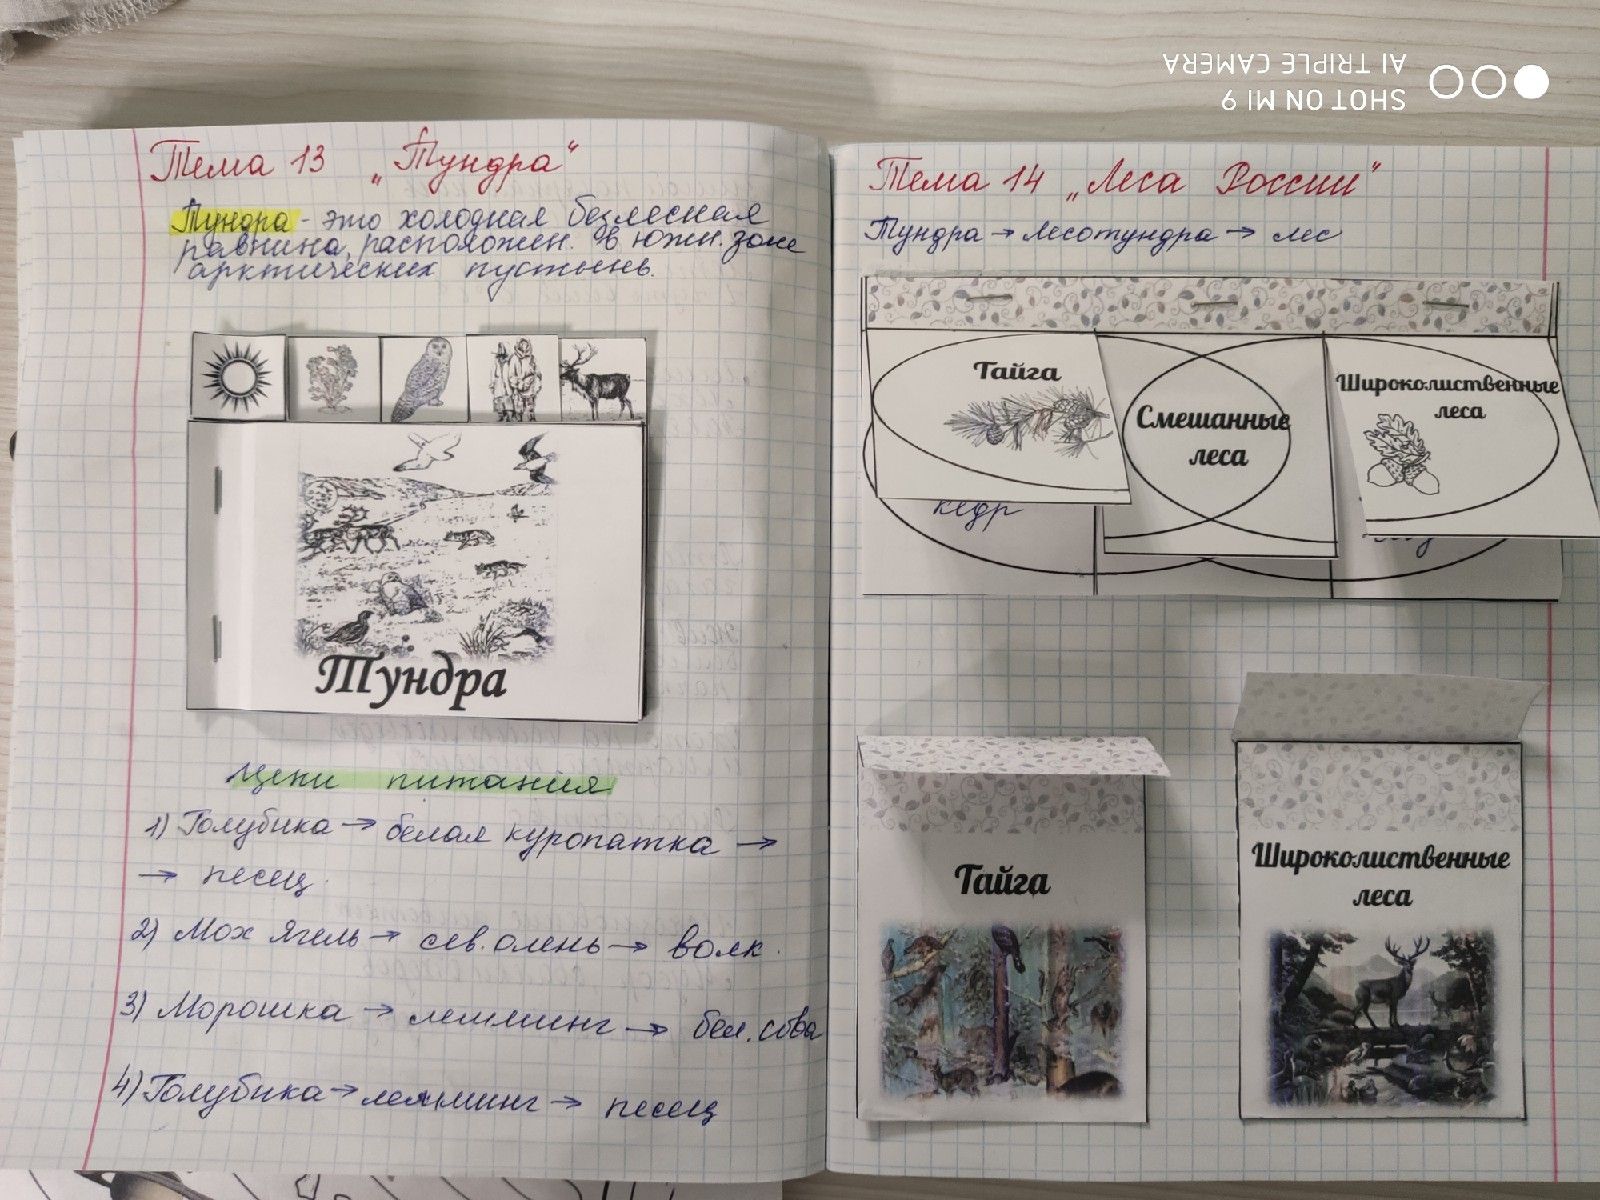 SHOT ON MI 9
AI TRIPLE CAMERA
Тема 13 „Тундра“
Тундра - это холодная безлесная
равнина, расположен. в южн. зоне
арктических пустынь.
Тундра
Цепи питания
1) Голубика → белая куропатка →
→ песец.
2) Мох Ягель → сев. олень → волк.
3) Морошка → лемминг → бел. сова
4) Голубика → лемминг → песец
Тема 14 „Леса России“
Тундра → лесотундра → лес
Тайга
Смешанные
леса
Широколиственные
леса
кедр
Тайга
Широколиственные
леса